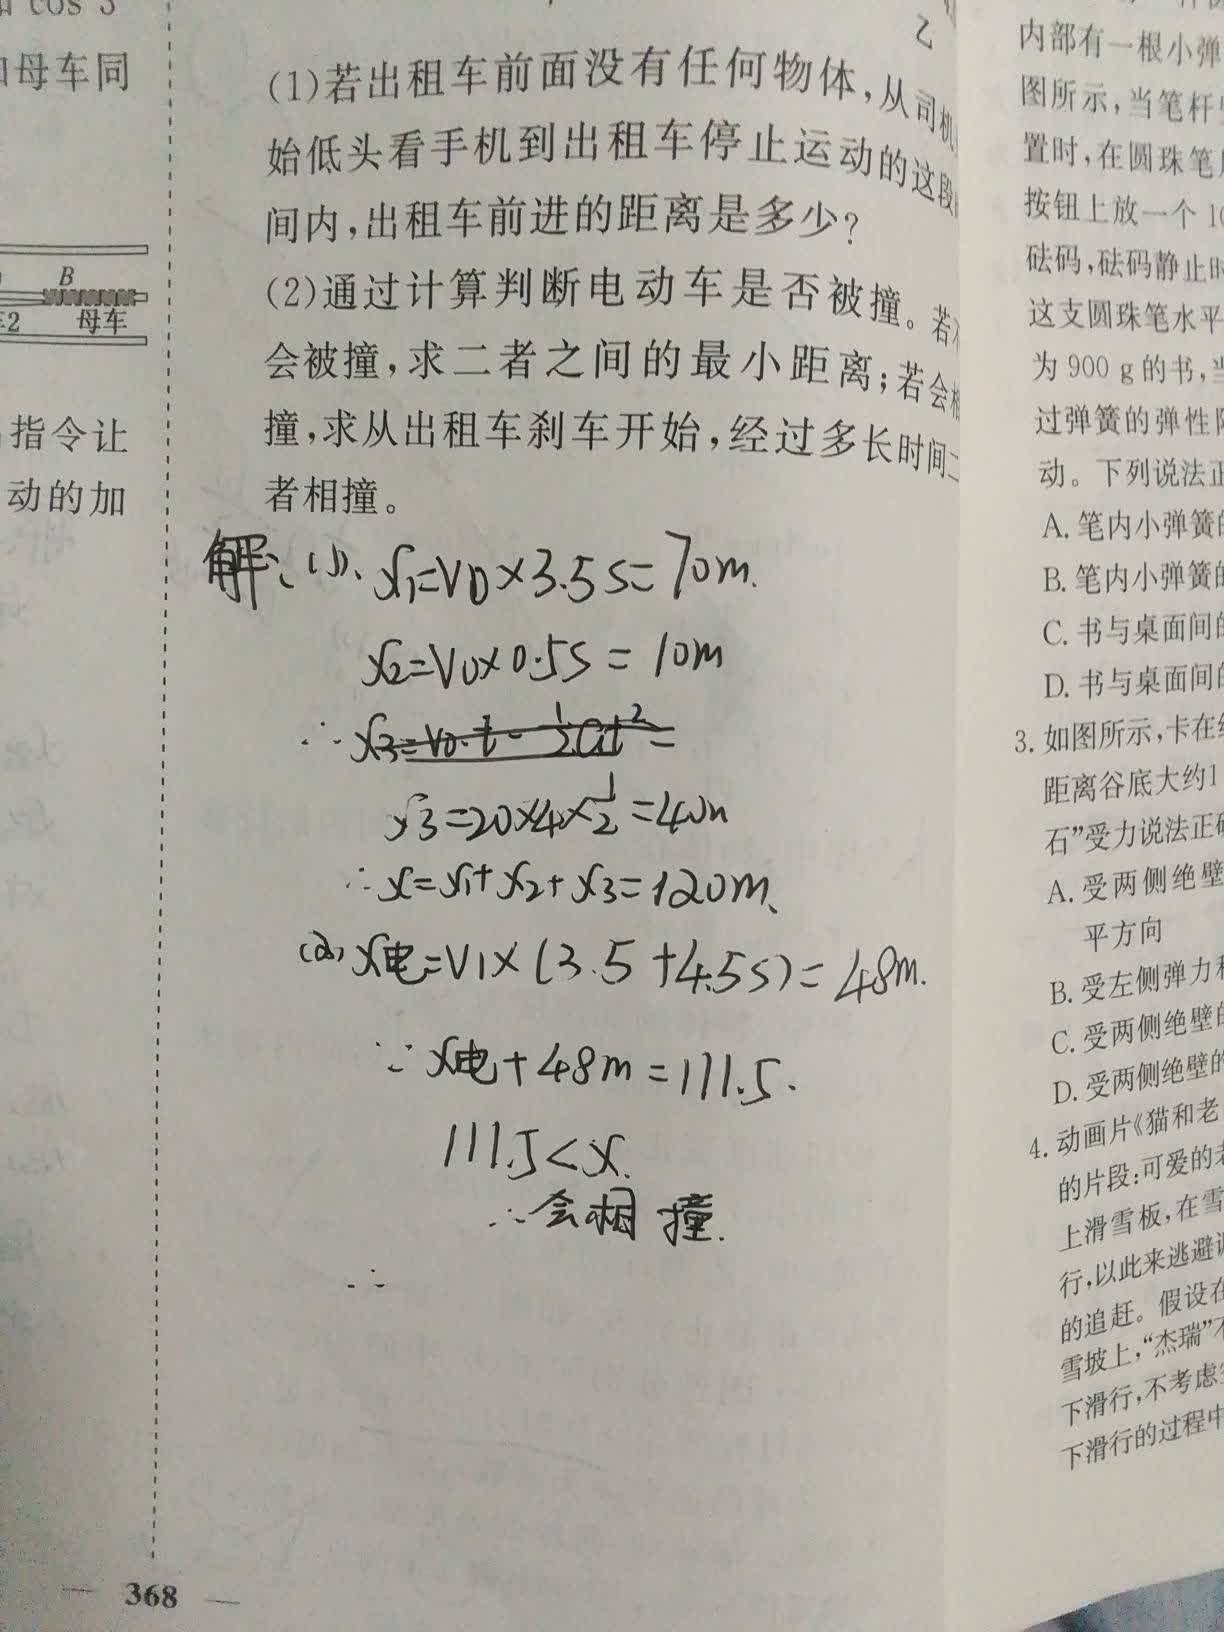 cos 3
母车同
B
2 母车
指令让
动的加
乙
(1)若出租车前面没有任何物体,从司机
始低头看手机到出租车停止运动的这段
间内,出租车前进的距离是多少?
(2)通过计算判断电动车是否被撞。若
会被撞,求二者之间的最小距离;若会
撞,求从出租车刹车开始,经过多长时间二
者相撞。
解:(1)、x1=v0×3.5s=70m.
x2=v0×0.5s=10m
∴x3=v0·t-1/2at2=
x3=20×4×1/2=40m
∴x=x1+x2+x3=120m、
(2)x电=v1×(3.5+4.5s)=48m.
∵x电+48m=111.5.
111.5<x.
∴会相撞.
∴
368
内部有一根小弹
图所示,当笔杆
置时,在圆珠笔
按钮上放一个 10
砝码,砝码静止时
这支圆珠笔水平
为 900 g 的书,当
过弹簧的弹性
动。下列说法正
A. 笔内小弹簧的
B. 笔内小弹簧的
C. 书与桌面间的
D. 书与桌面间的
3. 如图所示,卡在
距离谷底大约1
石”受力说法正确
A. 受两侧绝壁
平方向
B. 受左侧弹力
C. 受两侧绝壁的
D. 受两侧绝壁的
4. 动画片《猫和老
的片段:可爱的
上滑雪板,在雪
行,以此来逃避
的追赶。假设在
雪坡上,“杰瑞”不
下滑行,不考虑空
下滑行的过程中